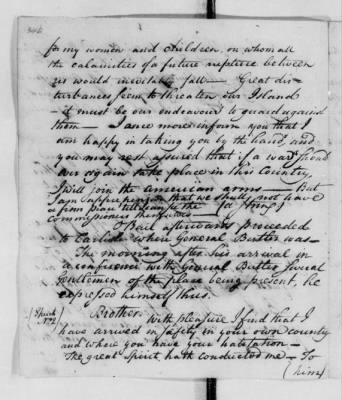 for my women and children, on whom all
the calamities of a future rupture between
us would inevitably fall — Great dis-
turbances seem to threaten our Island
— it must be our endeavour to guard against
them — I once more inform you that I
am happy in taking you by the hand, and
you may rest assured that if a war should
ever again take place in this Country,
I will join the american arms — But
I am apprehensive that we shall not have
a firm peace until
Commissioners
O'Bail afterwards proceeded
to Carlisle where General Butler was —
The morning after his arrival in
a conference with General Butler several
Gentlemen of the place being present, he
expressed himself thus.
Brother, With pleasure I find that I
have arrived in safety in your own country
and where you have your habitation —
The great Spirit hath conducted me — To
(him)